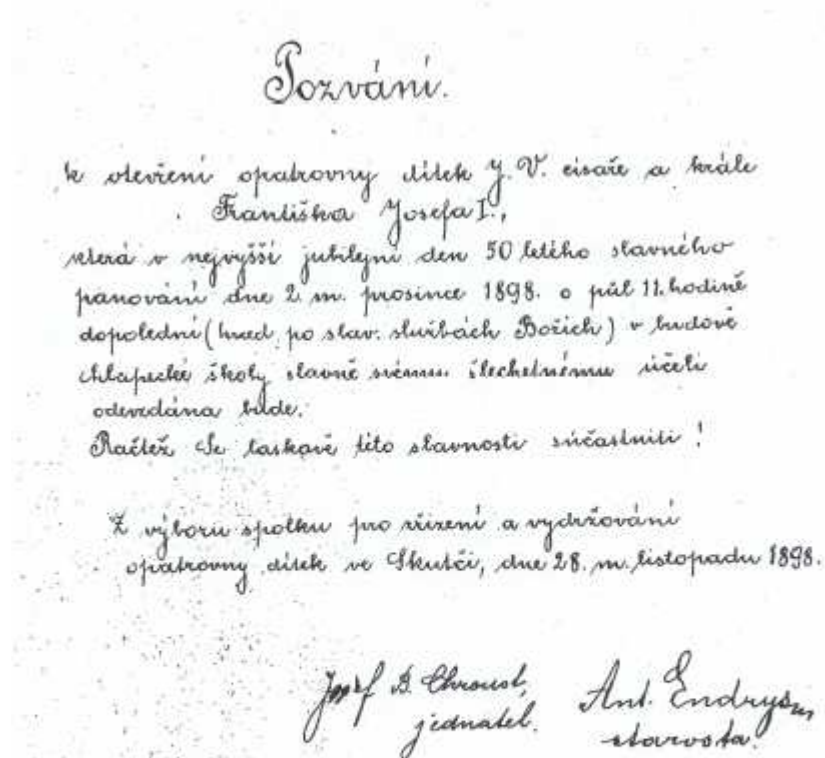 Pozvání.
k otevření opatrovny dítek J. V. císaře a krále
Františka Josefa I.,
která v nejvyšší jubilejní den 50 letého slavného
panování dne 2. m. prosince 1898. o půl 11. hodině
dopolední (hned po slav. službách Božích) v budově
chlapecké školy slavně svému šlechetnému účeli
odevzdána bude.
Račtež Se laskavě této slavnosti súčastniti!
Z výboru spolku pro zřízení a vydržování
opatrovny dítek ve Skutči, dne 28. m. listopadu 1898.
Josef B. Chroust, Ant. Endrys
jednatel. starosta.